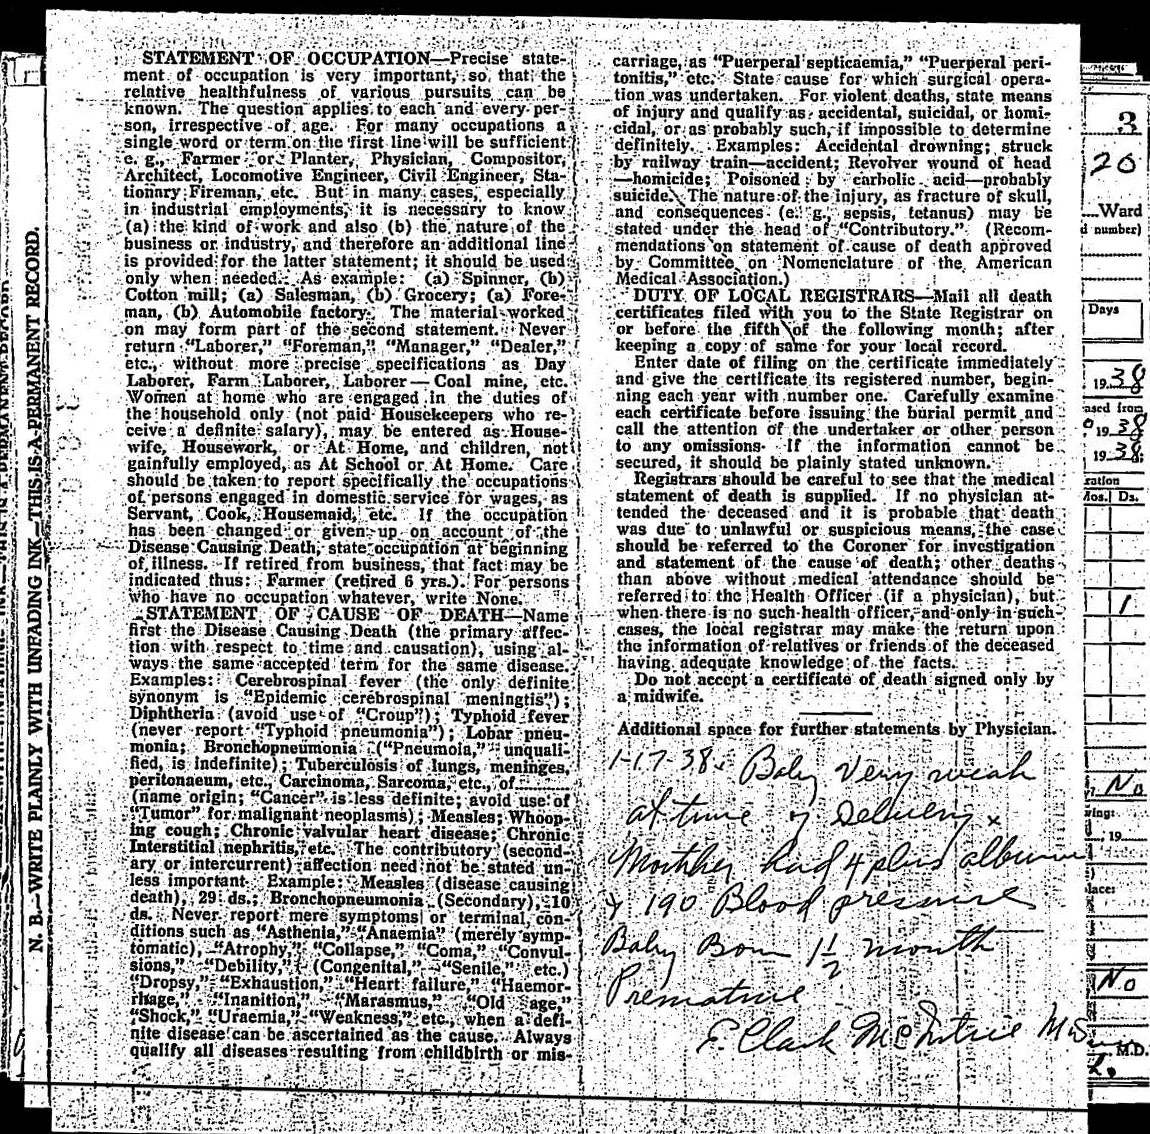 N. B.—WRITE PLAINLY WITH UNFADING INK—THIS IS A PERMANENT RECORD.
STATEMENT OF OCCUPATION—Precise state-
ment of occupation is very important, so that the
relative healthfulness of various pursuits can be
known. The question applies to each and every per-
son, irrespective of age. For many occupations a
single word or term on the first line will be sufficient
e. g., Farmer or Planter, Physician, Compositor,
Architect, Locomotive Engineer, Civil Engineer, Sta-
tionary Fireman, etc. But in many cases, especially
in industrial employments, it is necessary to know
(a) the kind of work and also (b) the nature of the
business or industry, and therefore an additional line
is provided for the latter statement; it should be used
only when needed. As example: (a) Spinner, (b)
Cotton mill; (a) Salesman, (b) Grocery; (a) Fore-
man, (b) Automobile factory. The material worked
on may form part of the second statement. Never
return "Laborer," "Foreman," "Manager," "Dealer,"
etc., without more precise specifications as Day
Laborer, Farm Laborer, Laborer—Coal mine, etc.
Women at home who are engaged in the duties of
the household only (not paid Housekeepers who re-
ceive a definite salary), may be entered as House-
wife, Housework, or At Home, and children, not
gainfully employed, as At School or At Home. Care
should be taken to report specifically the occupations
of persons engaged in domestic service for wages, as
Servant, Cook, Housemaid, etc. If the occupation
has been changed or given up on account of the
Disease Causing Death, state occupation at beginning
of illness. If retired from business, that fact may be
indicated thus: Farmer (retired 6 yrs.). For persons
who have no occupation whatever, write None.
STATEMENT OF CAUSE OF DEATH—Name
first the Disease Causing Death (the primary affec-
tion with respect to time and causation), using al-
ways the same accepted term for the same disease.
Examples: Cerebrospinal fever (the only definite
synonym is "Epidemic cerebrospinal meningtis");
Diphtheria (avoid use of "Croup"); Typhoid fever
(never report "Typhoid pneumonia"); Lobar pneu-
monia; Bronchopneumonia ("Pneumoia," unquali-
fied, is indefinite); Tuberculosis of lungs, meninges,
peritonaeum, etc., Carcinoma, Sarcoma, etc., of............
(name origin; "Cancer" is less definite; avoid use of
"Tumor" for malignant neoplasms); Measles; Whoop-
ing cough; Chronic valvular heart disease; Chronic
Interstitial nephritis, etc. The contributory (second-
ary or intercurrent) affection need not be stated un-
less important. Example: Measles (disease causing
death), 29 ds.; Bronchopneumonia (Secondary), 10
ds. Never report mere symptoms or terminal con-
ditions such as "Asthenia," "Anaemia" (merely symp-
tomatic), "Atrophy," "Collapse," "Coma," "Convul-
sions," "Debility," (Congenital," "Senile," etc.)
"Dropsy," "Exhaustion," "Heart failure," "Haemor-
rhage," "Inanition," "Marasmus," "Old age,"
"Shock," "Uraemia," "Weakness," etc., when a defi-
nite disease can be ascertained as the cause. Always
qualify all diseases resulting from childbirth or mis-
carriage, as "Puerperal septicaemia," "Puerperal peri-
tonitis," etc. State cause for which surgical opera-
tion was undertaken. For violent deaths, state means
of injury and qualify as accidental, suicidal, or homi-
cidal, or as probably such, if impossible to determine
definitely. Examples: Accidental drowning; struck
by railway train—accident; Revolver wound of head
—homicide; Poisoned by carbolic acid—probably
suicide. The nature of the injury, as fracture of skull,
and consequences (e. g., sepsis, tetanus) may be
stated under the head of "Contributory." (Recom-
mendations on statement of cause of death approved
by Committee on Nomenclature of the American
Medical Association.)
DUTY OF LOCAL REGISTRARS—Mail all death
certificates filed with you to the State Registrar on
or before the fifth of the following month; after
keeping a copy of same for your local record.
Enter date of filing on the certificate immediately
and give the certificate its registered number, begin-
ning each year with number one. Carefully examine
each certificate before issuing the burial permit and
call the attention of the undertaker or other person
to any omissions. If the information cannot be
secured, it should be plainly stated unknown.
Registrars should be careful to see that the medical
statement of death is supplied. If no physician at-
tended the deceased and it is probable that death
was due to unlawful or suspicious means, the case
should be referred to the Coroner for investigation
and statement of the cause of death; other deaths
than above without medical attendance should be
referred to the Health Officer (if a physician), but
when there is no such health officer, and only in such
cases, the local registrar may make the return upon
the information of relatives or friends of the deceased
having adequate knowledge of the facts.
Do not accept a certificate of death signed only by
a midwife.
Additional space for further statements by Physician.
1-17-38. Baby very weak
at time of delivery &
Morther had 4 plus albumin
& 190 Blood pressure
Baby Born 1½ month
Premature
E. Clark McIntire MD
3
20
Ward
d number)
Days
19 38
ased from
19 38
19 38
ration
Mos. Ds.
1
No
19
lace:
No
M.D.